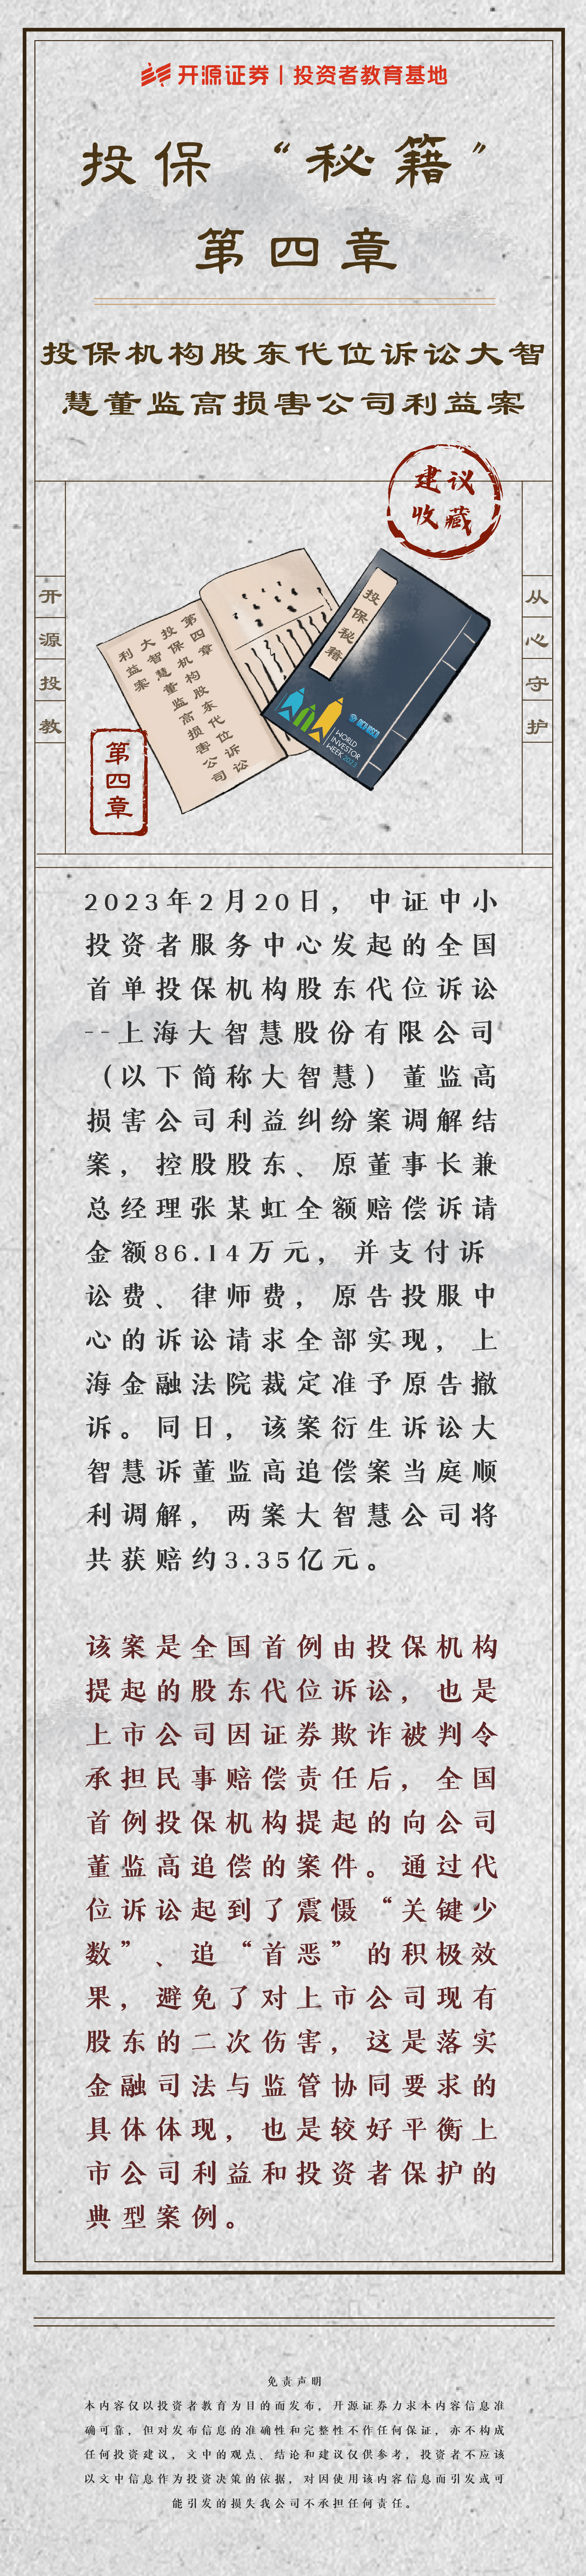 开源证券｜投资者教育基地
投保“秘籍”
第四章
投保机构股东代位诉讼大智
慧董监高损害公司利益案
建议
收藏
开源投教
从心守护
第四章
投保机构股东代位诉讼
大智慧董监高损害公司
利益案
投保秘籍
WORLD
INVESTOR
WEEK 2023
第四章
2023年2月20日，中证中小
投资者服务中心发起的全国
首单投保机构股东代位诉讼
--上海大智慧股份有限公司
（以下简称大智慧）董监高
损害公司利益纠纷案调解结
案，控股股东、原董事长兼
总经理张某虹全额赔偿诉请
金额86.14万元，并支付诉
讼费、律师费，原告投服中
心的诉讼请求全部实现，上
海金融法院裁定准予原告撤
诉。同日，该案衍生诉讼大
智慧诉董监高追偿案当庭顺
利调解，两案大智慧公司将
共获赔约3.35亿元。
该案是全国首例由投保机构
提起的股东代位诉讼，也是
上市公司因证券欺诈被判令
承担民事赔偿责任后，全国
首例投保机构提起的向公司
董监高追偿的案件。通过代
位诉讼起到了震慑“关键少
数”、追“首恶”的积极效
果，避免了对上市公司现有
股东的二次伤害，这是落实
金融司法与监管协同要求的
具体体现，也是较好平衡上
市公司利益和投资者保护的
典型案例。
免责声明
本内容仅以投资者教育为目的而发布，开源证券力求本内容信息准
确可靠，但对发布信息的准确性和完整性不作任何保证，亦不构成
任何投资建议，文中的观点、结论和建议仅供参考，投资者不应该
以文中信息作为投资决策的依据，对因使用该内容信息而引发或可
能引发的损失我公司不承担任何责任。